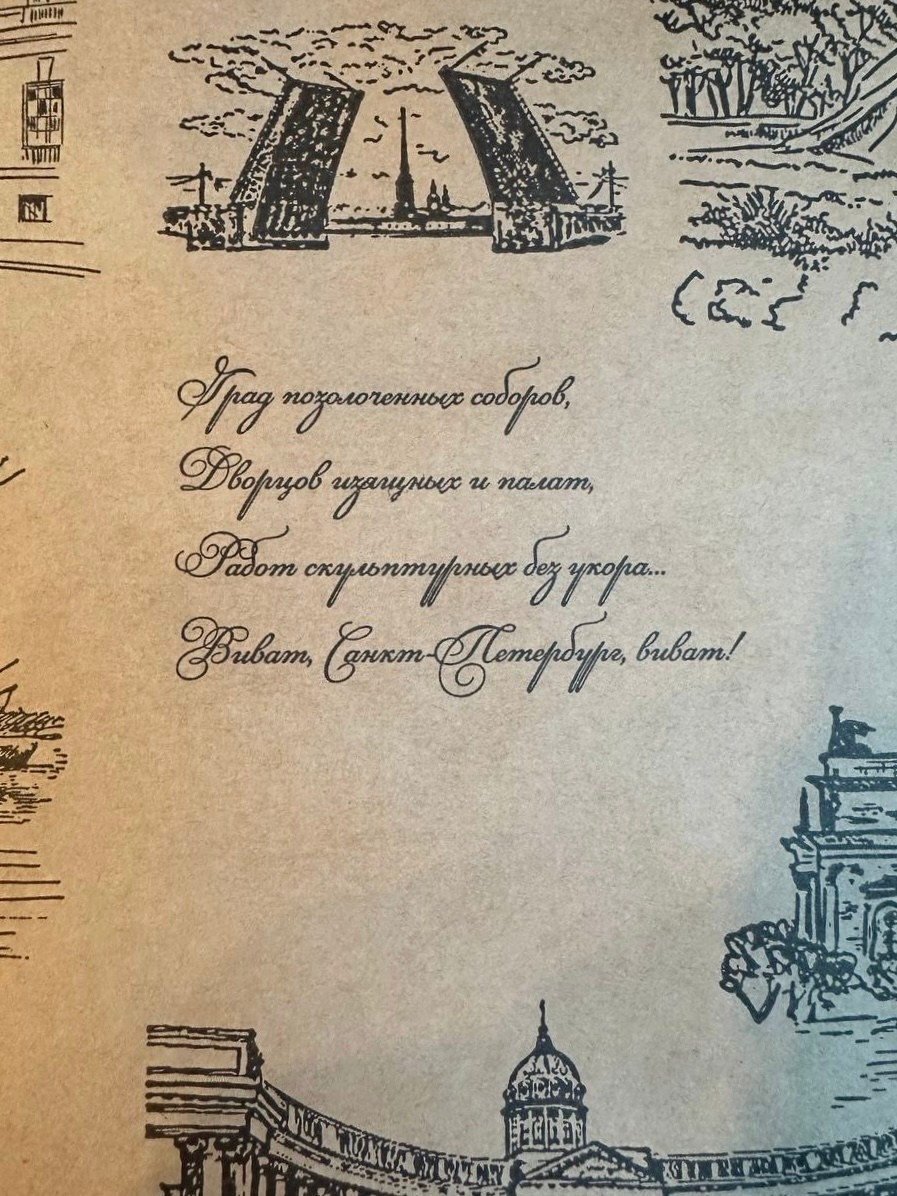 Град позолоченных соборов,
Дворцов изящных и палат,
Работ скульптурных без укора...
Виват, Санкт-Петербург, виват!